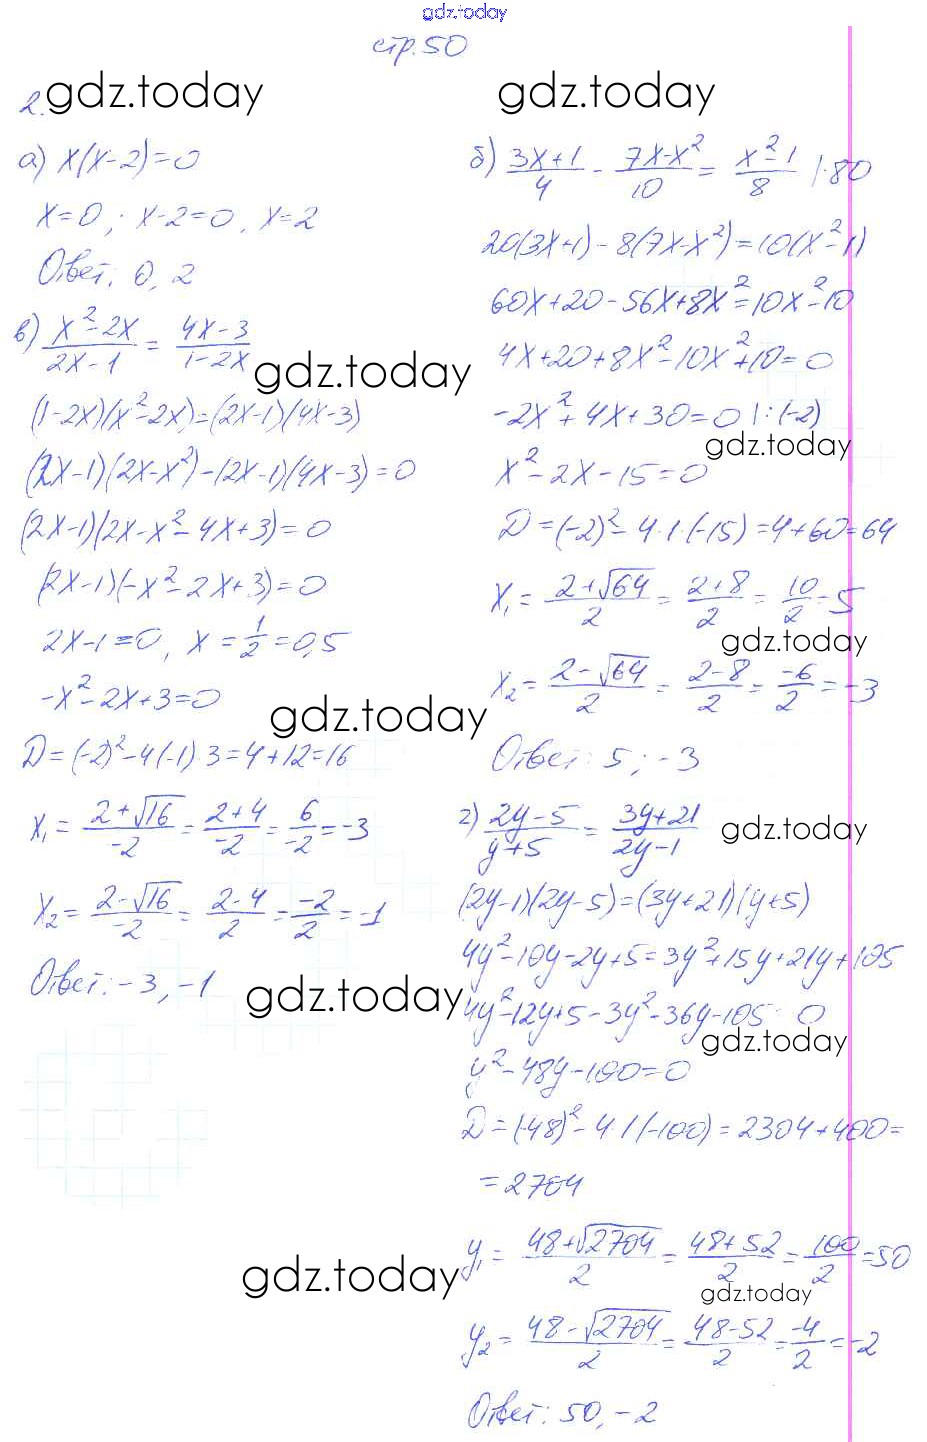 gdz.today
стр.50
2.
gdz.today
gdz.today
а) x(x-2)=0
x=0 ; x-2=0, x=2
Ответ: 0, 2
в) (x²-2x)/(2x-1) = (4x-3)/(1-2x)
gdz.today
(1-2x)(x²-2x)=(2x-1)(4x-3)
(2x-1)(2x-x²)-(2x-1)(4x-3)=0
(2x-1)(2x-x²-4x+3)=0
(2x-1)(-x²-2x+3)=0
2x-1=0, x=1/2=0,5
-x²-2x+3=0
gdz.today
D=(-2)²-4(-1)·3=4+12=16
x₁=(2+√16)/(-2)=(2+4)/(-2)=6/(-2)=-3
x₂=(2-√16)/(-2)=(2-4)/2=(-2)/2=-1
Ответ: -3, -1
gdz.today
б) (3x+1)/4 - (7x-x²)/10 = (x²-1)/8 |·80
20(3x+1)-8(7x-x²)=10(x²-1)
60x+20-56x+8x²=10x²-10
4x+20+8x²-10x²+10=0
-2x²+4x+30=0 |:(-2)
gdz.today
x²-2x-15=0
D=(-2)²-4·1·(-15)=4+60=64
x₁=(2+√64)/2=(2+8)/2=10/2=5
gdz.today
x₂=(2-√64)/2=(2-8)/2=(-6)/2=-3
Ответ: 5; -3
г) (2y-5)/(y+5)=(3y+21)/(2y-1)
gdz.today
(2y-1)(2y-5)=(3y+21)(y+5)
4y²-10y-2y+5=3y²+15y+21y+105
4y²-12y+5-3y²-36y-105=0
gdz.today
y²-48y-100=0
D=(-48)²-4·1(-100)=2304+400=
=2704
y₁=(48+√2704)/2=(48+52)/2=100/2=50
gdz.today
gdz.today
y₂=(48-√2704)/2=(48-52)/2=(-4)/2=-2
Ответ: 50, -2